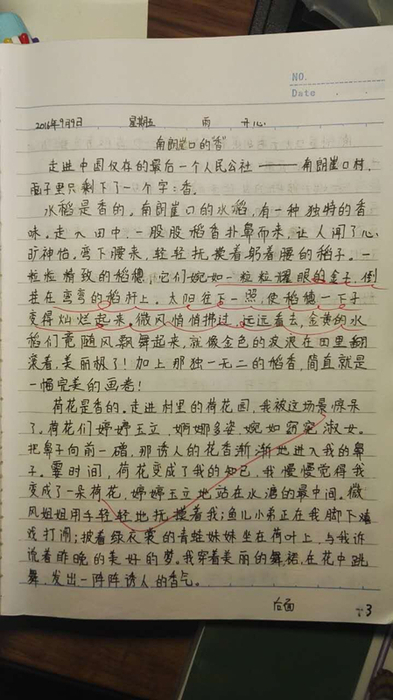 NO.
Date
2016年9月9日 星期五 雨 开心
南朗崖口的“香”
走进中国仅存的最后一个人民公社——南朗崖口村,
脑子里只剩下了一个字:香。
水稻是香的。南朗崖口的水稻,有一种独特的香
味。走入田中,一股股稻香扑鼻而来,让人闻了心
旷神怡。弯下腰来,轻轻抚摸着躬着腰的稻子。一
粒粒精致的稻穗,它们宛如一粒粒耀眼的金子,倒
挂在弯弯的稻杆上。太阳往下一照,使稻穗一下子
变得灿烂起来。微风悄悄拂过,远远看去,金黄的水
稻们竟随风飘舞起来,就像金色的波浪在田里翻
滚着,美丽极了!加上那独一无二的稻香,简直就是
一幅完美的画卷!
荷花是香的。走进村里的荷花园,我被这场景惊呆
了。荷花们婷婷玉立,婀娜多姿,宛如窈窕淑女。
把鼻子向前一蹭,那诱人的花香渐渐地进入我的鼻
子。霎时间,荷花变成了我的知己,我慢慢觉得我
变成了一朵荷花,婷婷玉立地站在水塘的最中间。微
风姐姐用手轻轻地抚摸着我;鱼儿小弟正在我脚下嬉
戏打闹;披着绿衣裳的青蛙妹妹坐在荷叶上,与我诉
说着昨晚的美好的梦。我穿着美丽的舞裙,在花中跳
舞,发出一阵阵诱人的香气。
后面